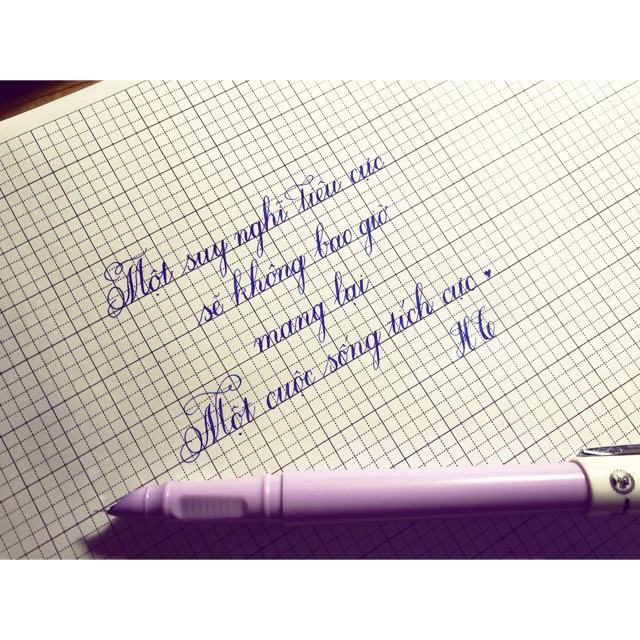 Một suy nghĩ Tiêu cực
sẽ không bao giờ
mang lại
Một cuộc sống tích cực